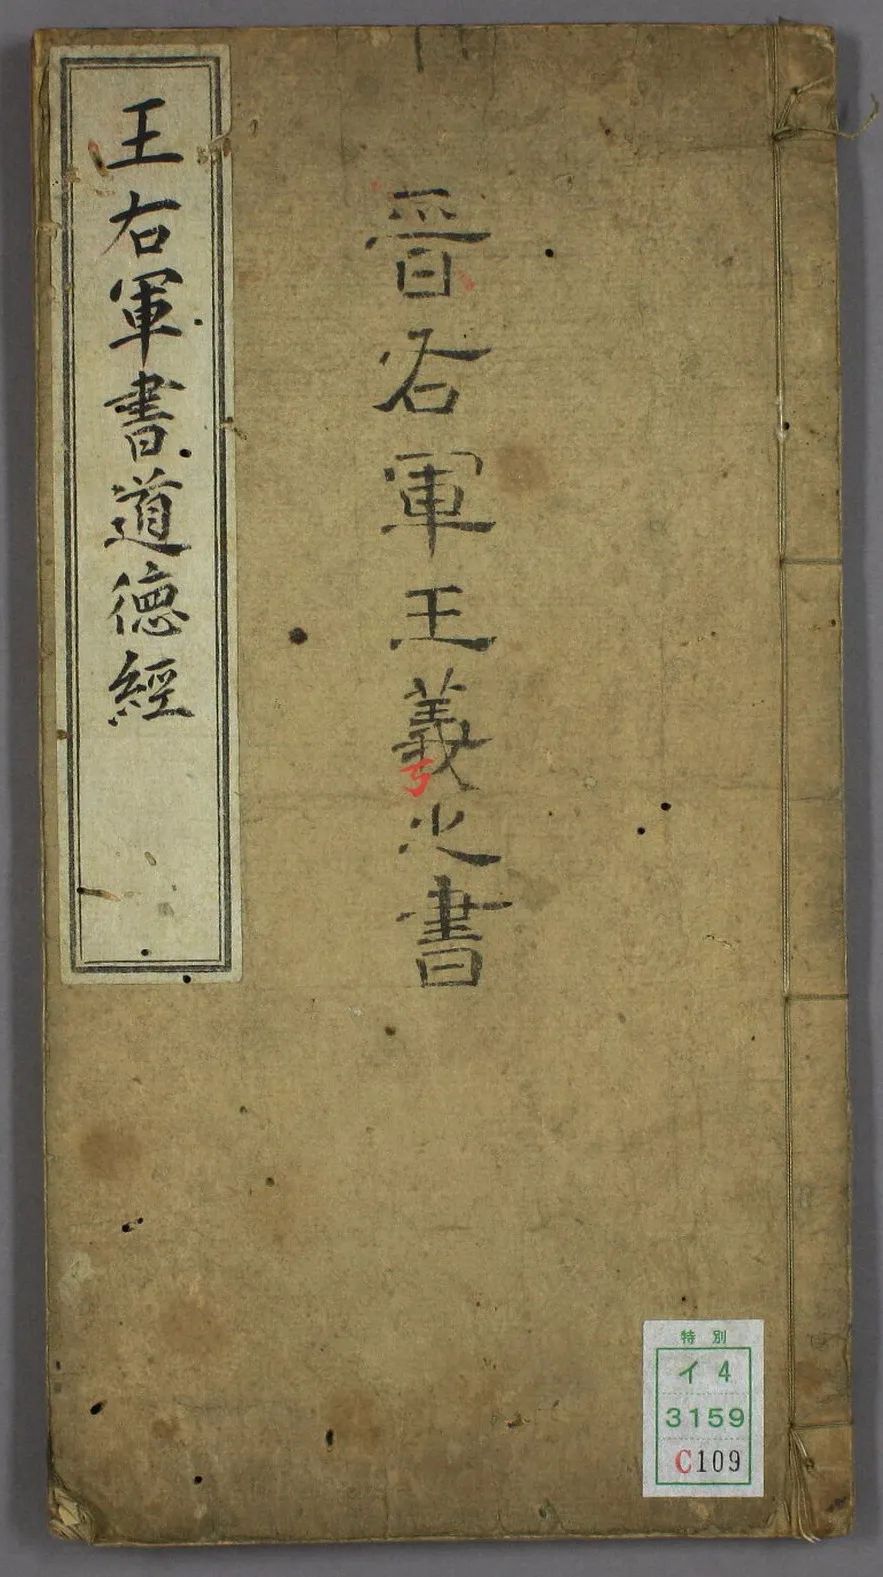 晋右軍王羲之書
王右軍書道德經
特別
イ4
3159
C109